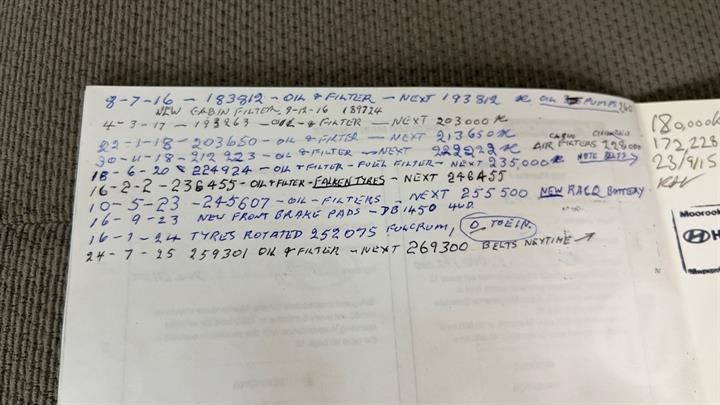 8-7-16 - 183812 - OIL & FILTER - NEXT 193812 OIL PUMPS
NEW CABIN FILTER. 9-12-16 189724
4-3-17 - 193263 - OIL & FILTER - NEXT 203000K
22-1-18 - 203650 - OIL & FILTER - NEXT 213650K
CABIN
30-4-18 - 212923 - OIL & FILTER - NEXT 222922 AIR FILTERS 228000
18-6-20 - 224924 - OIL & FILTER - FUEL FILTER - NEXT 235000K NOTE BELTS →
16-2-2 - 236455 - OIL & FILTER - FALKEN TYRES - NEXT 246455
10-5-23 - 245607 - OIL - FILTERS - NEXT 255500 NEW RACQ BATTERY
16-9-23 NEW FRONT BRAKE PADS - DB1450 4WD
16-1-24 TYRES ROTATED 252075 FULCRUM, 0 TOE IN.
24-7-25 259301 OIL & FILTER - NEXT 269300 BELTS NEXTIME →
180,000K
172,228
23/9/15
Mooroo
H